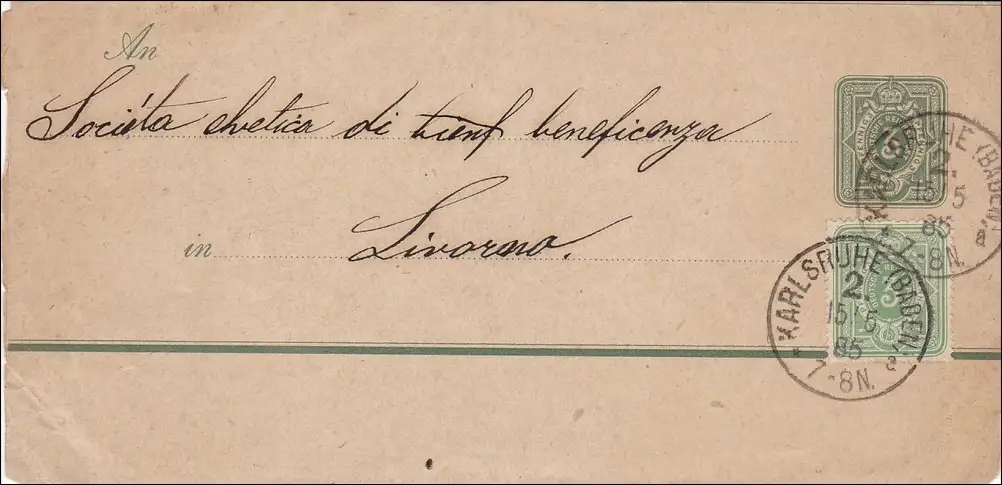 An
Società elvetica di beneficenza
in Livorno.
KARLSRUHE (BADEN)
2.
15 5
85
7-8N.
a
3
KARLSRUHE (BADEN)
2.
15 5
85
7-8N.
a
3